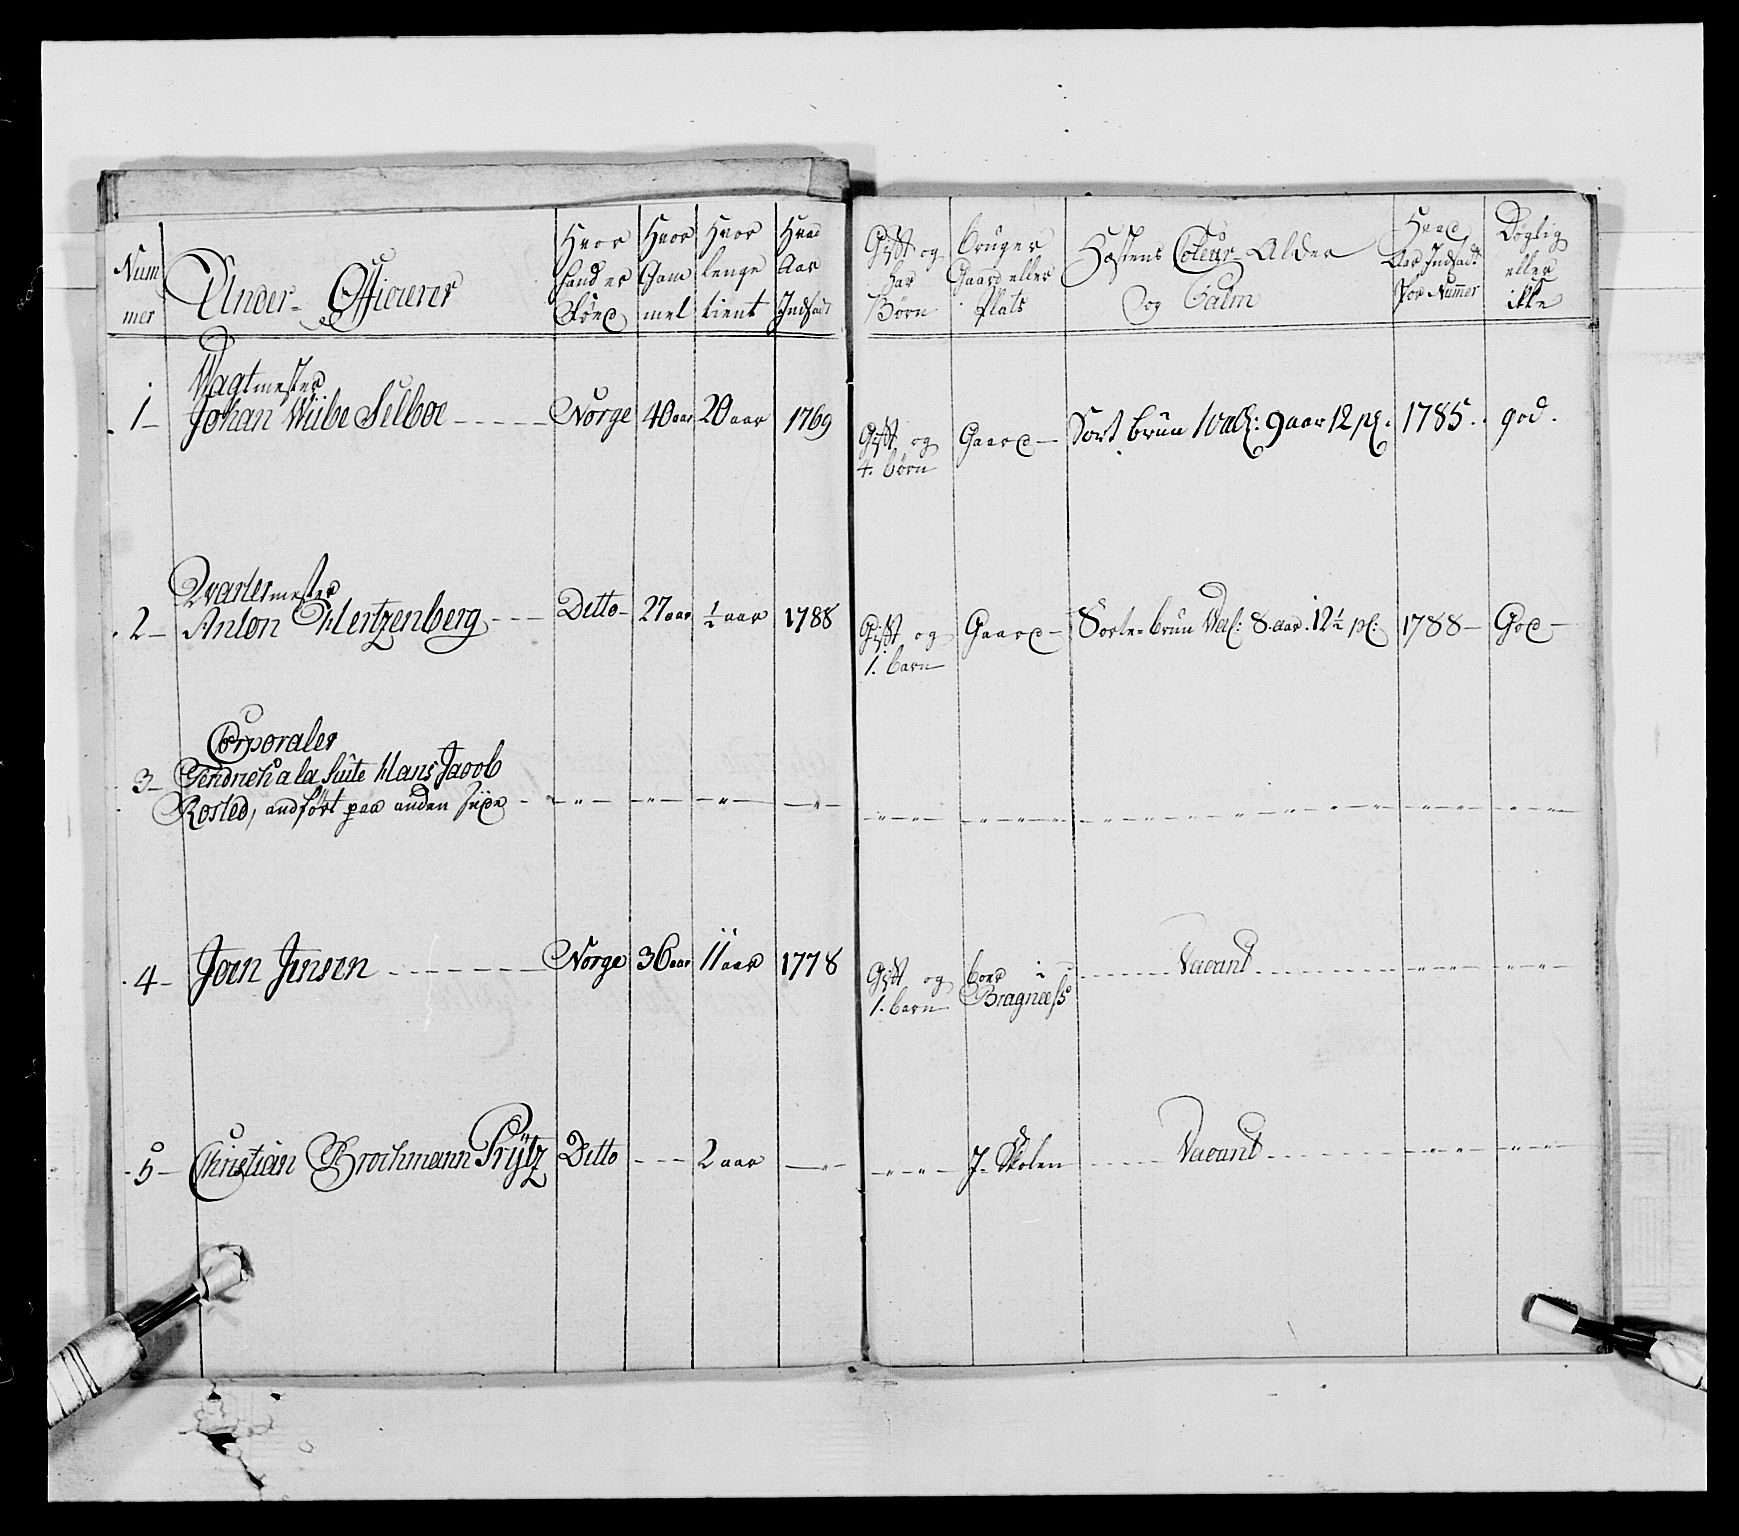 Num
mer
Under-Officierer
Hvor
hand er
föed
Hvor
Gam
mel
Hvor
lenge
tient
Hvad
Aar
Indsadt
Gift og
har
Børn
bruger
Gaard eller
Plats
Hæstens Coleur-Alder
og Palm
Hvad
Aar Indsadt
For Nummer
Døgtig
eller
ikke
Vagtmester
1- Johan Wübe Selboe - - - - Norge 40 aar 20 aar 1769 Gift og 4. børn Gaard- Sort brun Val: 9 aar 12 pl. 1785. god.
Qvartermester
2- Anton Hertzenberg - - - Ditto- 27 aar ½ aar 1788 Gift og 1. barn Gaard- Sorte-brun Val: 8. aar. 12½ pl: 1788- God-
Corporaler
3- Fendrich a la Suite Hans Jacob
Rosted, andført paa anden Siide
4- Joen Jensen - - - - Norge 36 aar 11 aar 1778 Gift og 1. barn boer i Bragneess Vacant
5- Christian Brochmann Prÿtz Ditto - - - 2 aar J. Skolen Vacant